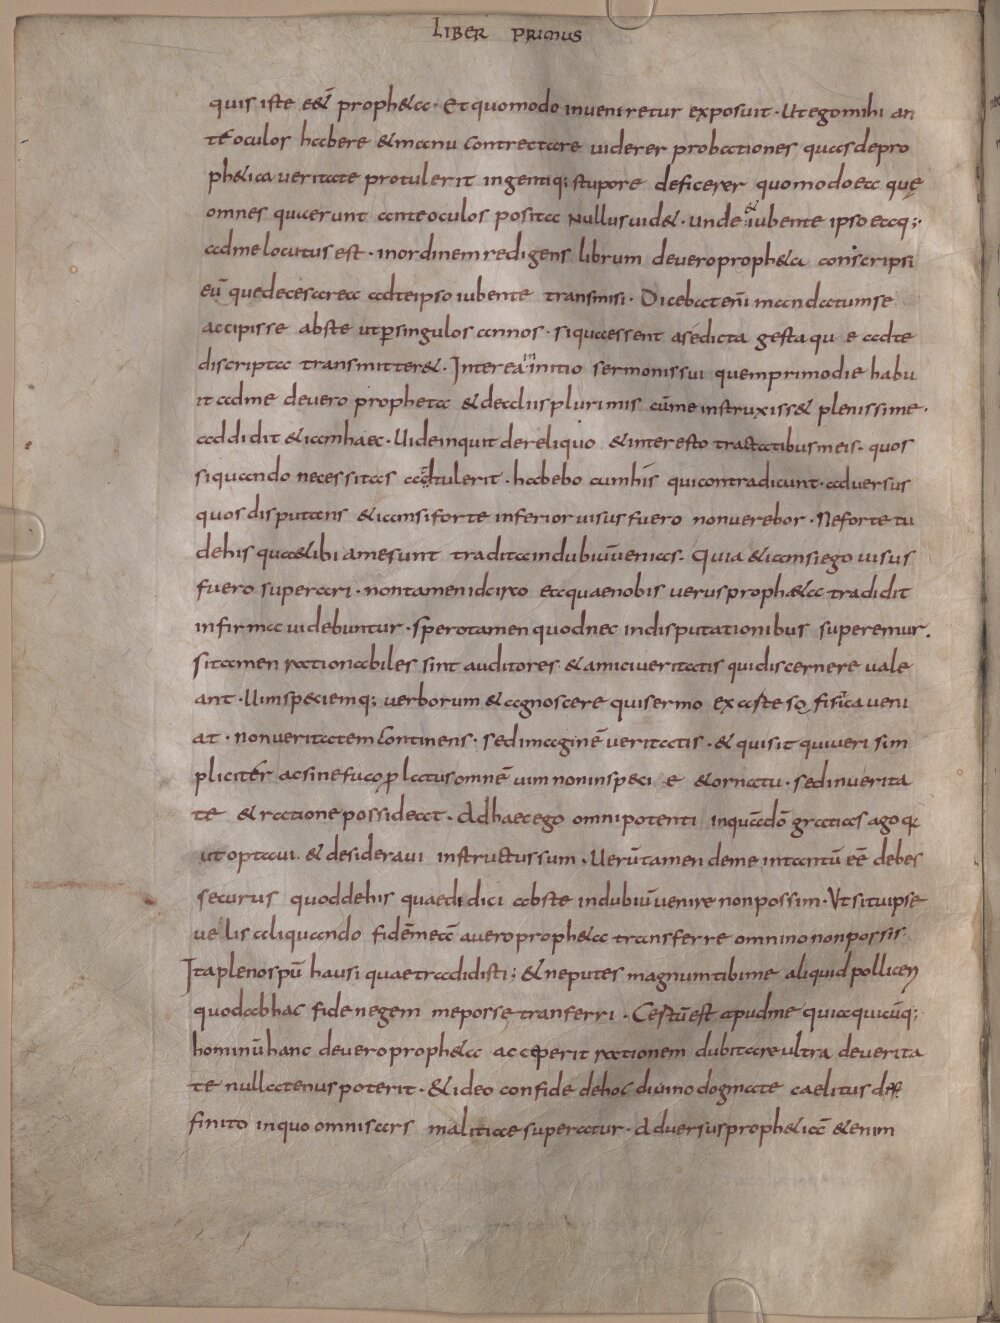 LIBER PRIMUS
quis iste e&̄ proph&a · Et quomodo inveniretur exposuit · Ut ego mihi an
te oculos habere & manu contrectare viderer probationes quas de pro
ph&ica veritate protulerit ingentiq; stupore deficerer quomodo ea quę
omnes querunt ante oculos posita Nullus uid& · unde & iubente ipso eaq;·
ad me locutus est · in ordinem redigens librum de vero proph&a conscripsi
eū que de cesarea ad te ipso iubente transmisi · Dicebat eni mandatum se
accipisse abs te ut p̱ singulos annos · si qua essent ase dicta gestaqu e ad te
discripta transmitter& · Interea in initio sermonis sui quem primo die habu
it ad me de vero propheta & de aliis plurimis cūme instruxiss& plenissime ·
addidit & iam haec · Uide inquit de reliquo & interesto tractatibus meis · quos
si quando necessitas attulerit · habebo cum his qui contradicunt · adversus
quos disputans & iam si forte inferior uisus fuero non verebor · Ne forte tu
de his quae tibi a me sunt tradita in dubiū venias · Quia & iam si ego uisus
fuero superari · non tamen idcirco ea quae nobis verus proph&a tradidit
infirma uidebuntur · spero tamen quod nec in disputationibus superemur ·
si tamen rationabiles sint auditores & amici veritatis qui discernere vale
ant · Uim speciemq; verborum & agnoscere qui sermo ex arte sofistica veni
at · non veritatem continens · sed imaginē veritatis · & qui sit qui veri sim
pliciter ac sine fuco p̱latus omnē uim non in speci e & ornatu · sed in verita
te & ratione possideat · Ad haec ego omnipotenti inquā dō gratias ago q̄
ut optavi & desideravi instructus sum · Verūtamen de me intantū eē debes
securus quod de his quae didici abs te in dubiū venire non possim · Ut si tu ipse
velis aliquando fidē meā a vero proph&a transferre omnino non possis
Ita pleno spū hausi quae tradidisti ; & ne putes magnum tibi me aliquid pollicen
quod ab hac fide negem me posse tranferri · Certū est apud me quia quicūq;
hominū hanc de vero proph&a acceperit rationem dubitare ultra de verita
te nullatenus poterit · & ideo confide de hoc divino dogmate caelitus dif
finito in quo omnis ars malitiae superatur · Adversus proph&iā &enim